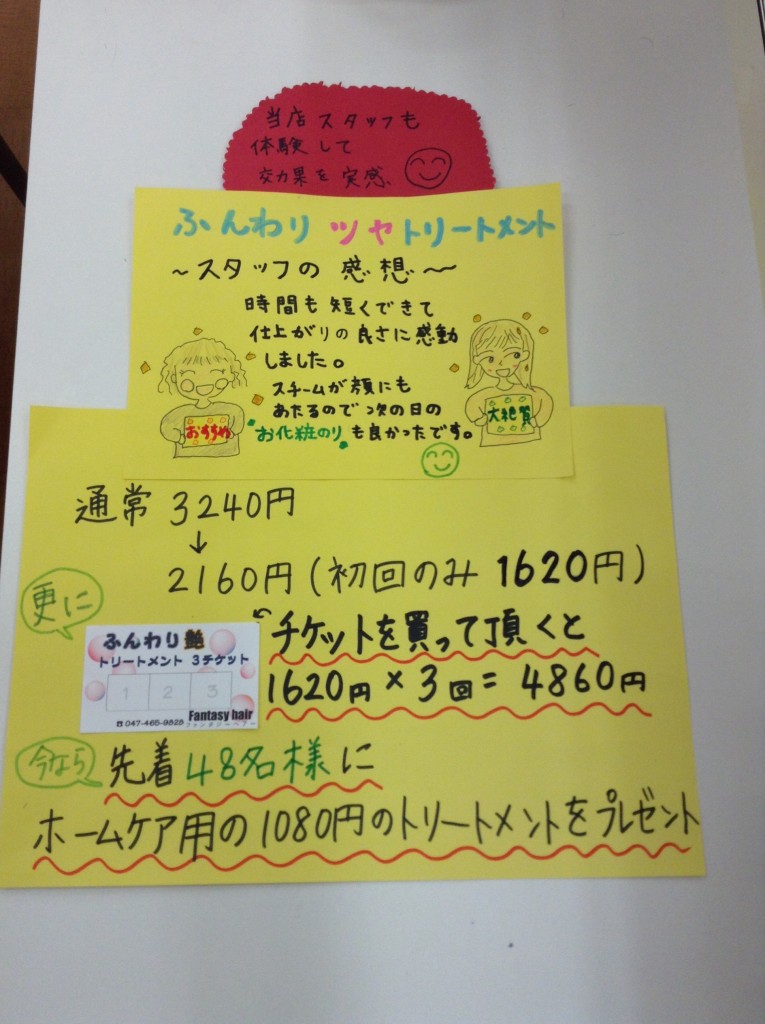 当店スタッフも
体験して
効果を実感
ふんわりツヤトリートメント
~スタッフの感想~
時間も短くできて
仕上がりの良さに感動
しました。
スチームが顔にも
あたるので次の日の
"お化粧のり"も良かったです。
おすすめ
大絶賛
通常 3240円
↓
2160円(初回のみ 1620円)
更に
チケットを買って頂くと
1620円×3回=4860円
ふんわり艶
トリートメント 3チケット
1 2 3
☎047-465-9828 Fantasy hair
ファンタジーヘアー
今なら
先着48名様に
ホームケア用の1080円のトリートメントをプレゼント